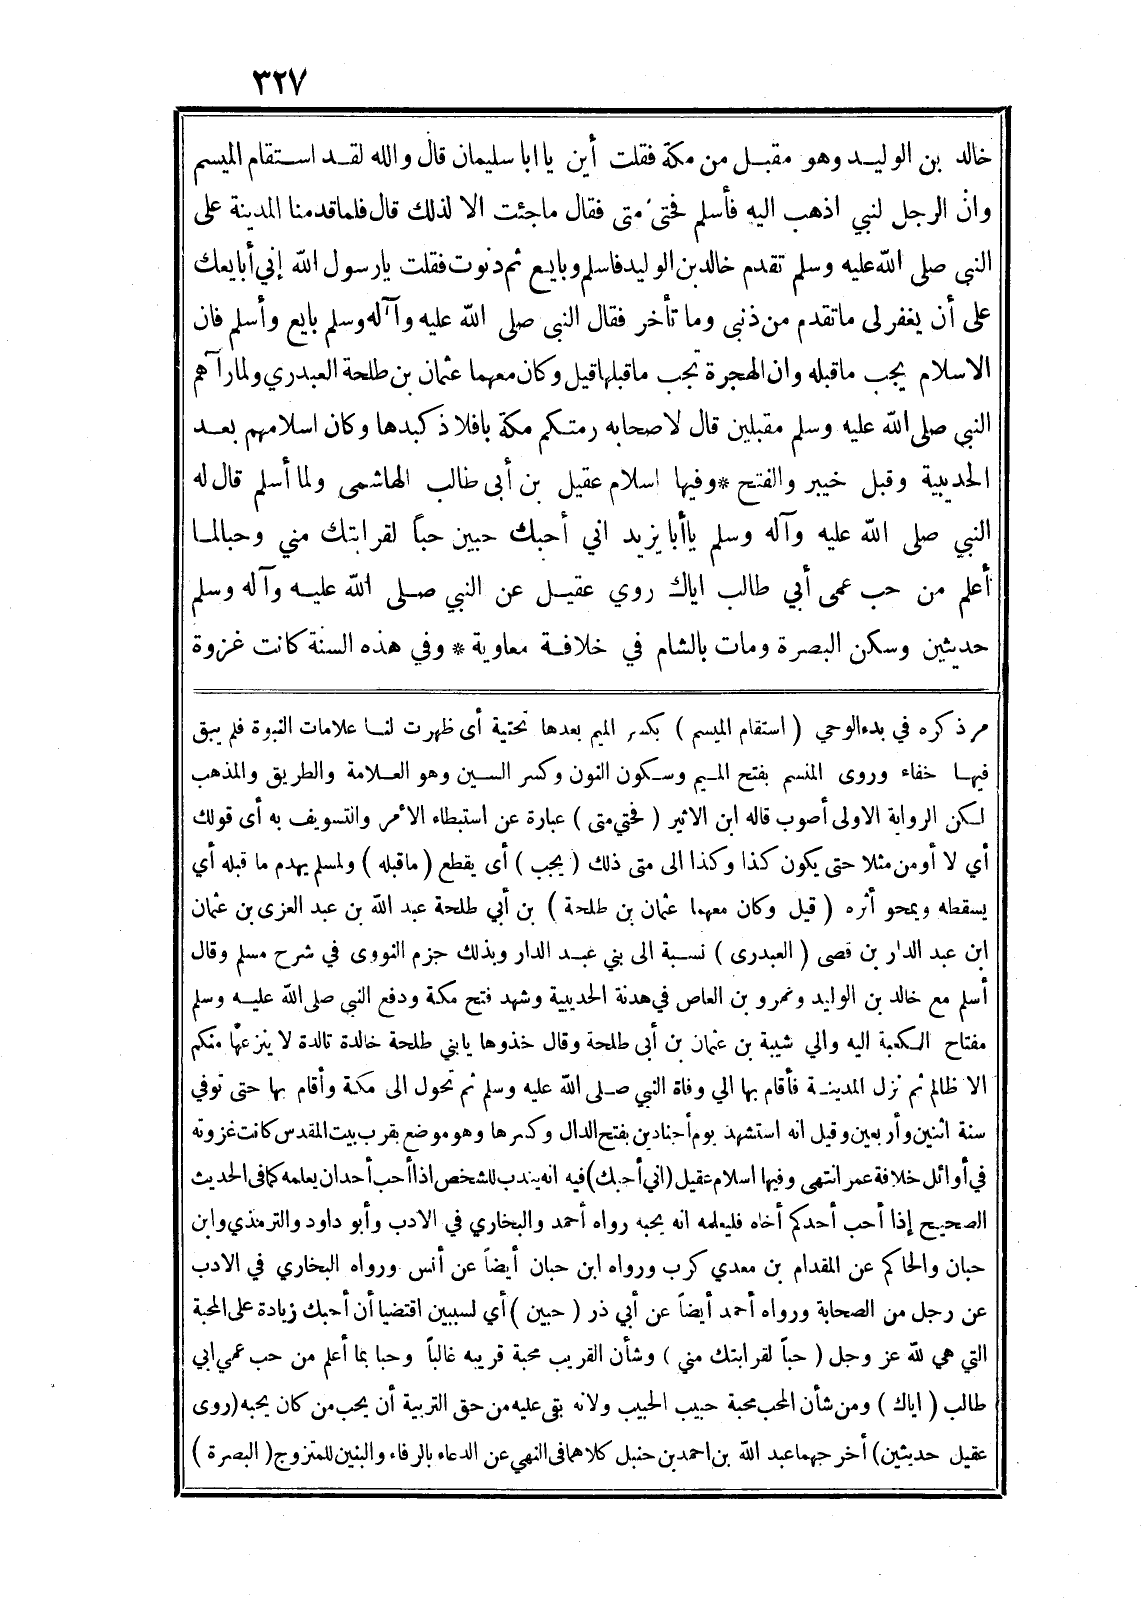 ٣٢٧
خالد بن الوليد وهو مقبل من مكة فقلت أين يا ابا سليمان قال والله لقد استقام الميسم
وان الرجل لنبي اذهب اليه فأسلم فحتى متى فقال ماجئت الا لذلك قال فلما قدمنا المدينة على
النبي صلى الله عليه وسلم تقدم خالد بن الوليد فاسلم وبايع ثم دنوت فقلت يارسول الله إني أبايعك
على أن يغفر لى ماتقدم من ذنبى وما تأخر فقال النبي صلى الله عليه وآله وسلم بايع وأسلم فان
الاسلام يجب ماقبله وان الهجرة تجب ماقبلها قيل وكان معهما عثمان بن طلحة العبدري ولما رآهم
النبي صلى الله عليه وسلم مقبلين قال لاصحابه رمتكم مكة بافلاذ كبدها وكان اسلامهم بعد
الحديبية وقبل خيبر والفتح *وفيها اسلام عقيل بن أبى طالب الهاشمى ولما أسلم قال له
النبي صلى الله عليه وآله وسلم ياأبا يزيد اني أحبك حبين حباً لقرابتك مني وحبالما
أعلم من حب عمى أبي طالب اياك روي عقيل عن النبي صلى الله عليه وآله وسلم
حديثين وسكن البصرة ومات بالشام في خلافة معاوية * وفي هذه السنة كانت غزوة
مر ذكره في بدء الوحي ( استقام الميسم ) بكسر الميم بعدها تحتية أى ظهرت لنا علامات النبوة فلم يبق
فيها خفاء وروى المنسم بفتح الميم وسكون النون وكسر السين وهو العلامة والطريق والمذهب
لكن الرواية الاولى أصوب قاله ابن الاثير ( فحتي متى ) عبارة عن استبطاء الأمر والتسويف به أى قولك
أي لا أومن مثلا حتى يكون كذا وكذا الى متى ذلك ( يجب ) أى يقطع ( ماقبله ) ولمسلم يهدم ما قبله أي
يسقطه ويمحو أثره ( قيل وكان معهما عثمان بن طلحة ) بن أبي طلحة عبد الله بن عبد العزى بن عثمان
ابن عبد الدار بن قصى ( العبدرى ) نسبة الى بني عبد الدار وبذلك جزم النووى في شرح مسلم وقال
أسلم مع خالد بن الوليد وعمرو بن العاص في هدنة الحديبية وشهد فتح مكة ودفع النبي صلى الله عليه وسلم
مفتاح الكعبة اليه والي شيبة بن عثمان بن أبى طلحة وقال خذوها يابني طلحة خالدة تالدة لا ينزعها منكم
الا ظالم ثم نزل المدينة فأقام بها الي وفاة النبي صلى الله عليه وسلم ثم تحول الى مكة وأقام بها حتى توفي
سنة اثنين وأربعين وقيل انه استشهد يوم أجنادين بفتح الدال وكسرها وهو موضع بقرب بيت المقدس كانت غزوته
في أوائل خلافة عمر انتهى وفيها اسلام عقيل (اني أحبك) فيه انه يندب للشخص اذا أحب أحد ان يعلمه كما في الحديث
الصحيح إذا أحب أحدكم أخاه فليعلمه انه يحبه رواه أحمد والبخاري في الادب وأبو داود والترمذي وابن
حبان والحاكم عن المقدام بن معدي كرب ورواه ابن حبان أيضاً عن أنس ورواه البخاري في الادب
عن رجل من الصحابة ورواه أحمد أيضاً عن أبي ذر ( حبين ) أي لسببين اقتضيا أن أحبك زيادة على المحبة
التي هي لله عز وجل ( حباً لقرابتك مني ) وشأن القريب محبة قريبه غالباً وحبا بما أعلم من حب عمي ابي
طالب ( اياك ) ومن شأن المحب محبة حبيب الحبيب ولانه بقى عليه من حق التربية أن يحب من كان يحبه (روى
عقيل حديثين) أخرجهما عبد الله بن احمد بن حنبل كلاهما في النهي عن الدعاء بالرفاء والبنين للمتزوج ( البصرة )